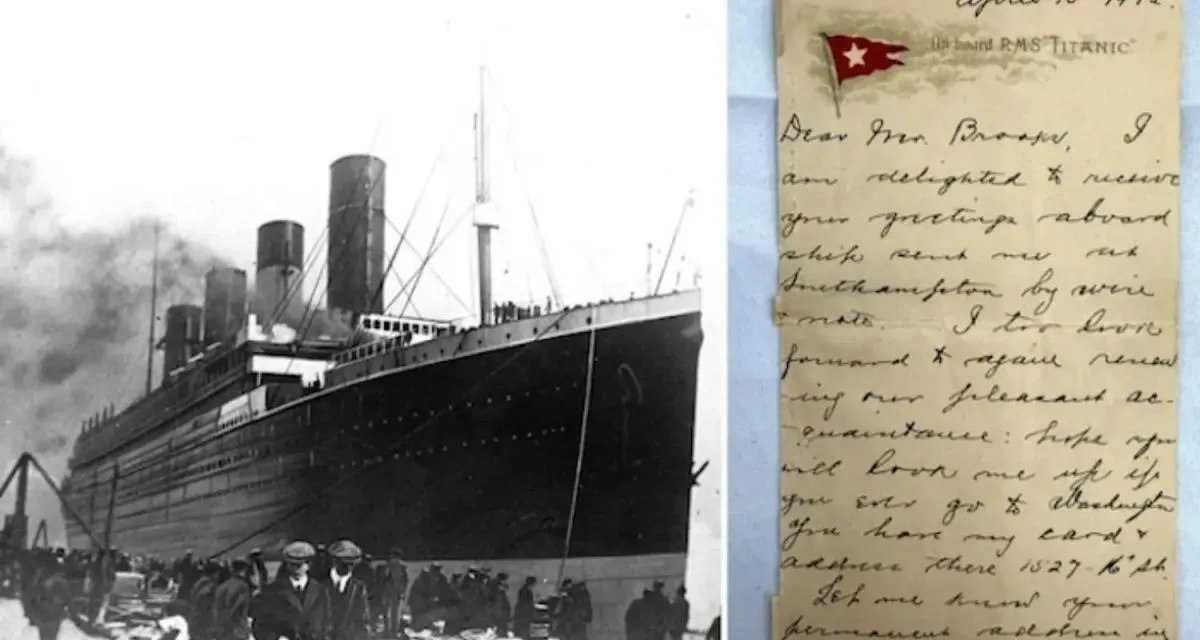 April 10 1912.
On board RMS "TITANIC"
Dear Mr. Brooks, I
am delighted to receive
your greetings aboard
ship sent me at
Southampton by wire
& note. I too look
forward to again renew
-ing our pleasant ac-
quaintance: hope you
will look me up if
you ever go to Washington
You have my card &
address there 1527 - 16" st.
Let me know your
permanent address in